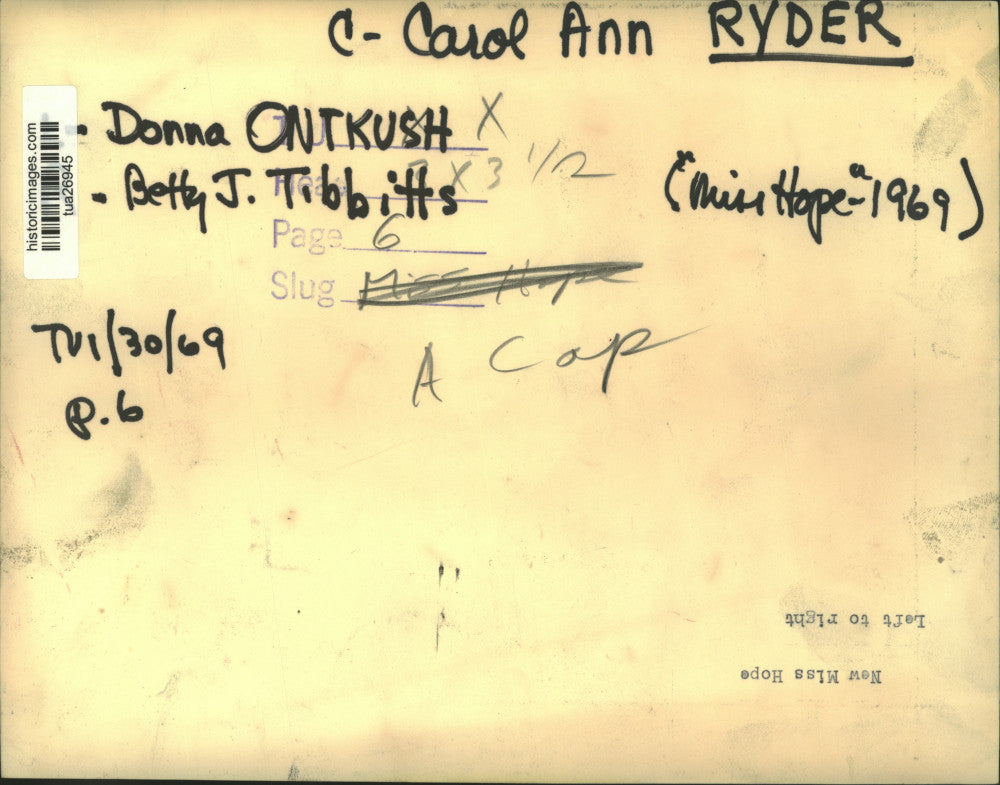 C- Carol Ann RYDER
- Donna ONTKUSH X
- Betty J. Tibbitts X 3 1/2
("Miss Hope"-1969)
Page 6
Slug Miss Hope
A Cap
TV1/30/69
P. 6
historicimages.com
tua26945
Left to right
New Miss Hope